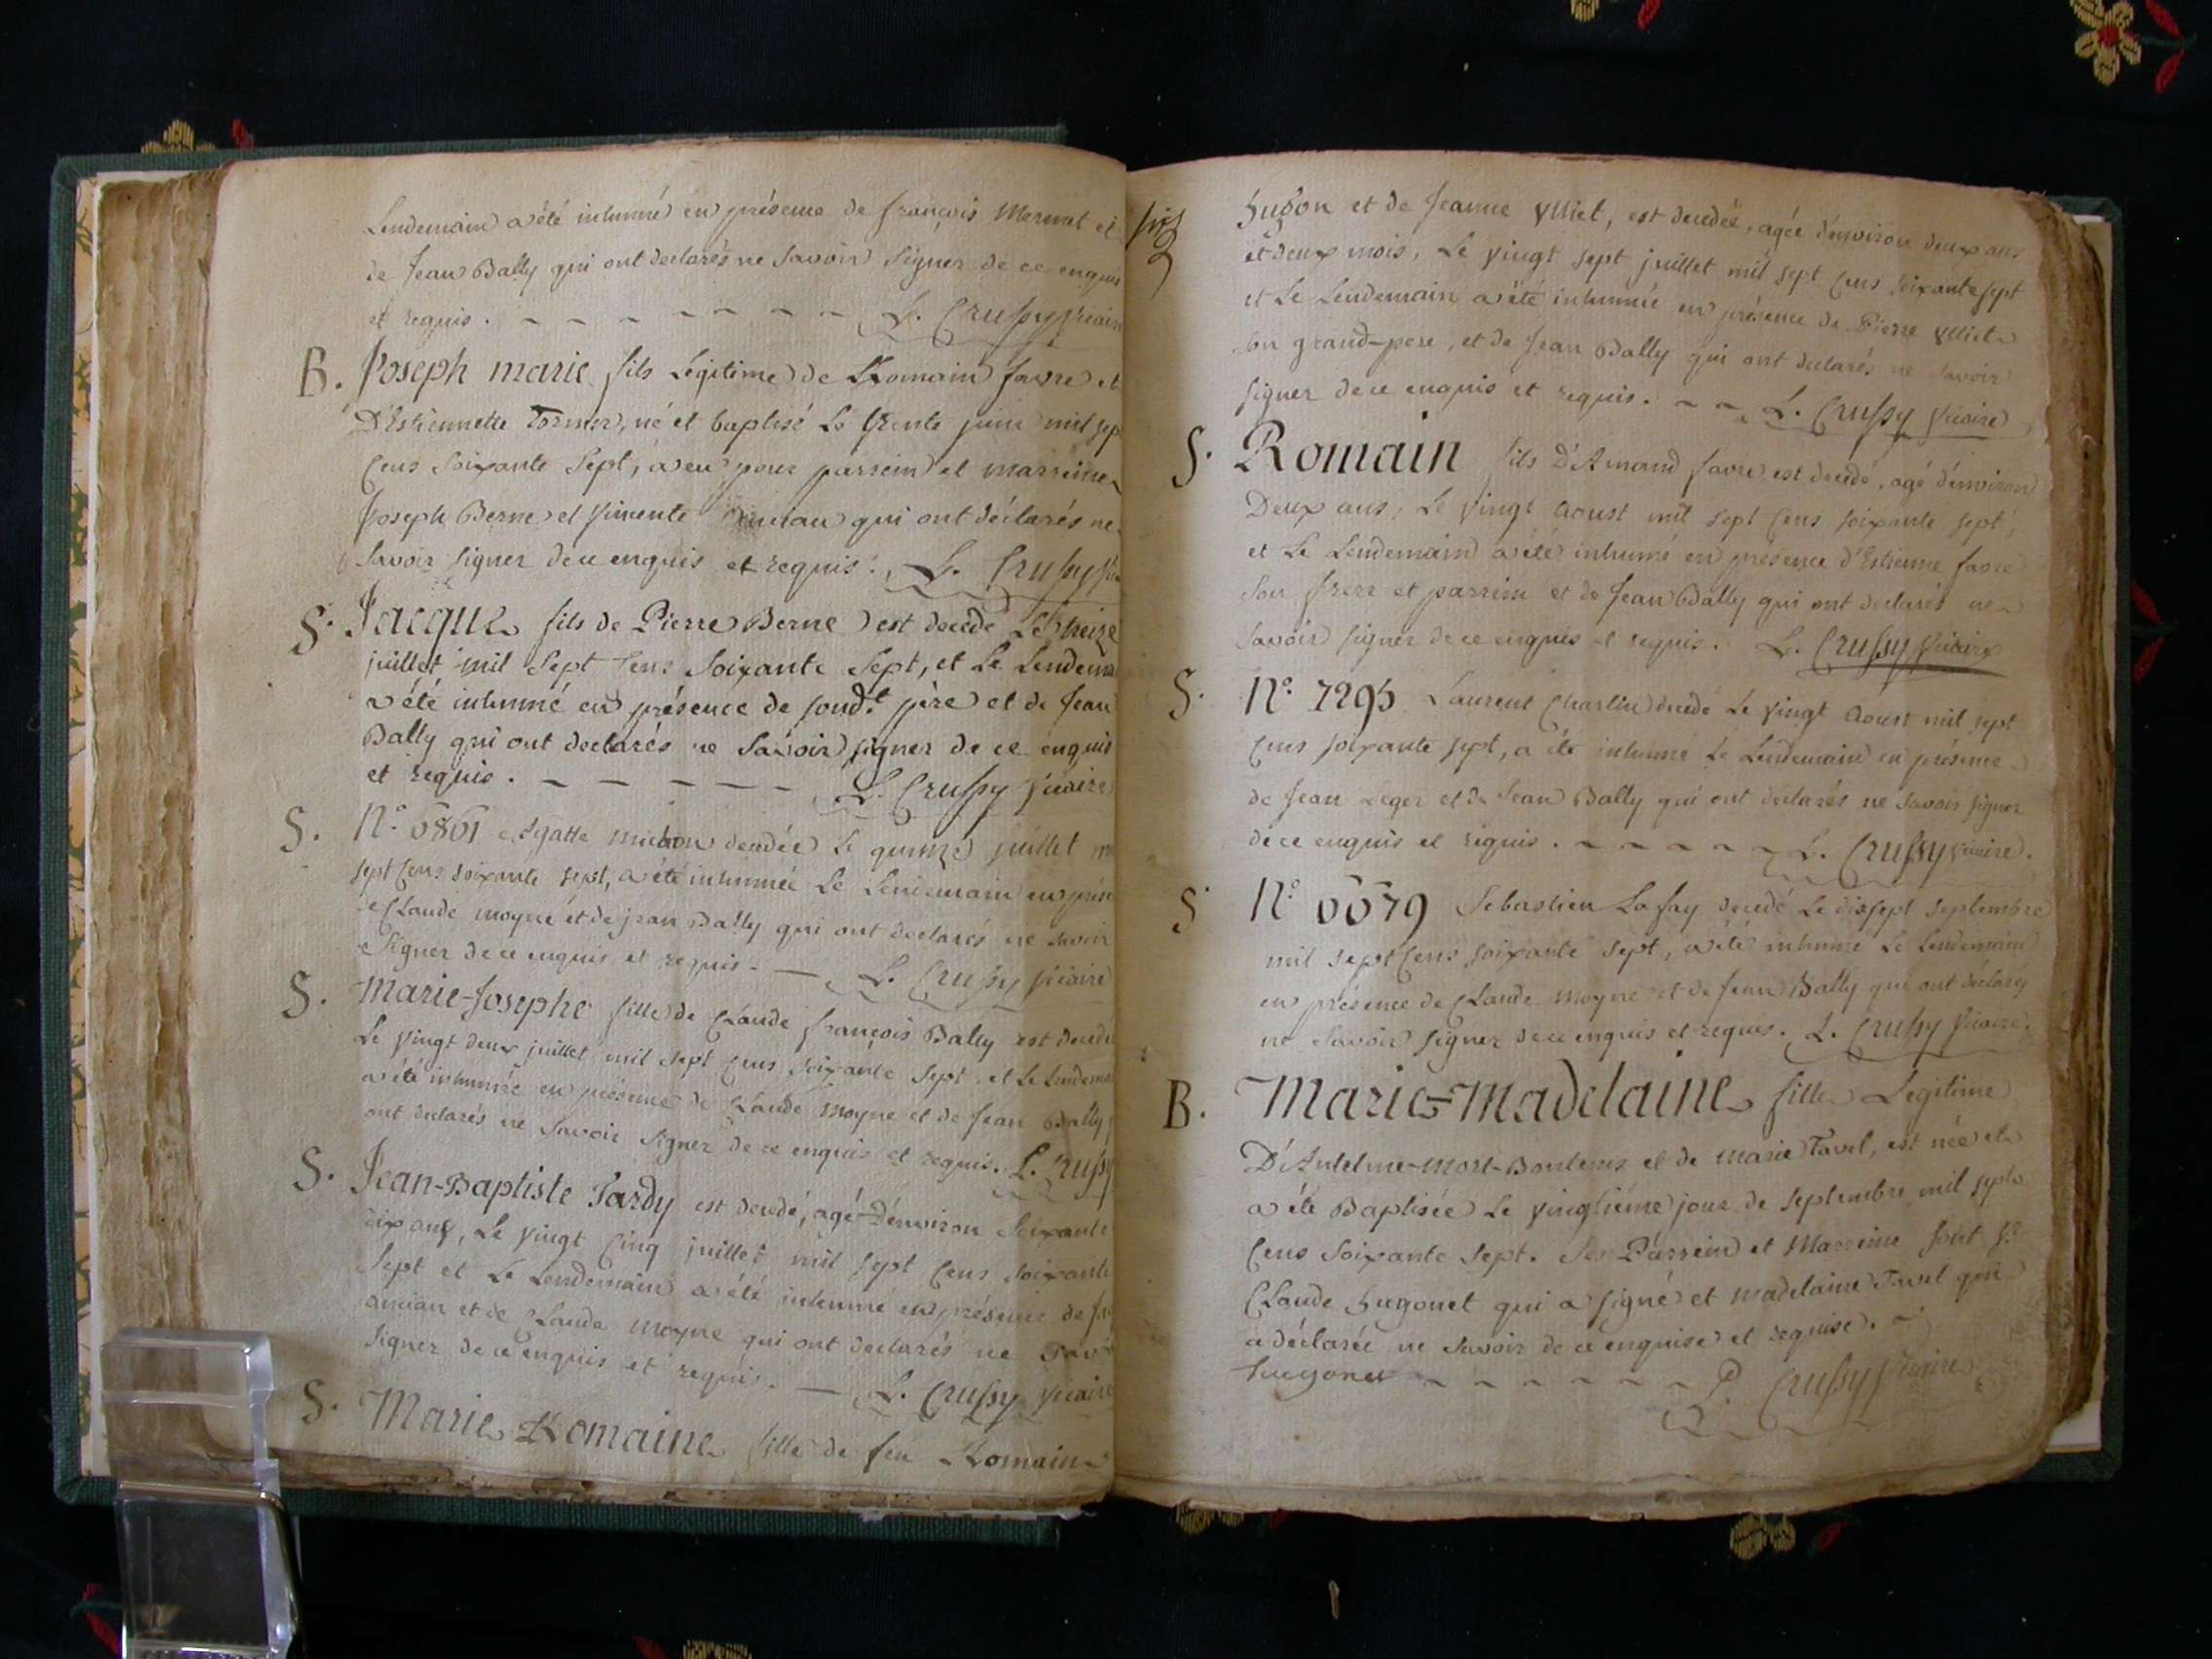 Lendemain a été inhumé en présence de françois Mermet et
de Jean Bally qui ont declarés ne Savoir Signer de ce enquis
et requis. - - - - - - - - L. Crussy Vicaire
B. Joseph marie fils Légitime de Romain favre et
D'Estiennette Tornier, né et baptisé Le trente juin mil sep
Cens Soixante Sept, a eu pour parrein et marreine
Joseph Berne et Vincente qui ont déclarés ne
Savoir signer de ce enquis et requis. L. Crussy
S. Jacque fils de Pierre Berne est decedé Le treize
juillet mil Sept Cens Soixante Sept, et Le Lendemain
a été inhumé en présence de sond.t père et de Jean
Bally qui ont declarés ne Savoir signer de ce enquis
et requis. - - - - - - L. Crussy Vicaire
S. N.o 6861 Agatte michon decedée Le quinze juillet
sept Cens soixante sept, a été inhumée Le Lendemain en prés
Claude moyne et de jean Bally qui ont declarés ne savoir
Signer de ce enquis et requis. — L. Crussy Vicaire
S. Marie-Josephe fille de Claude françois Bally est decedé
Le vingt deux juillet mil sept cens soixante sept et Le Lendemain
a été inhumée en présence de Claude Moyne et de Jean Bally
ont declarés ne Savoir Signer de ce enquis et requis. L. Crussy
S. Jean-Baptiste Tardy est decedé, agé d'environ Soixante
dix ans, Le vingt Cinq juillet mil sept Cens soixante
Sept et Le Lendemain a été inhumé en présence de
et de Claude Moyne qui ont declarés ne Savoir
Signer de ce enquis et requis. — L. Crussy Vicaire
S. Marie Romaine fille de feu Romain
hugon et de Jeanne Ylliet, est decedée, agée d'environ deux ans
et deux mois, Le vingt sept juillet mil sept Cens soixante sept
et Le Lendemain a été inhumée en présence de Pierre Ylliet
son grand-pere, et de Jean Bally qui ont declarés ne savoir
signer de ce enquis et requis. - - L. Crussy Vicaire
S. Romain fils D'Amand favre est decedé, agé d'environ
Deux ans, Le vingt Aoust mil sept Cens soixante sept,
et Le Lendemain a été inhumé en présence d'Estienne favre
Son frere et parrein et de Jean Bally qui ont declarés ne
Savoir signer de ce enquis et requis. L. Crussy Vicaire
S. N.o 7295 Laurent Charlin decedé Le vingt Aoust mil sept
Cens soixante sept, a été inhumé Le Lendemain en présence
de Jean Leger et de Jean Bally qui ont declarés ne savoir signer
de ce enquis et requis. - - - - - L. Crussy vicaire.
S N.o 6679 Sebastien La fay decedé Le dixsept septembre
mil sept Cens soixante sept, a été inhumé Le Lendemain
en présence de Claude moyne et de Jean Bally qui ont declarés
ne Savoir signer de ce enquis et requis. L. Crussy Vicaire.
B. Marie-Madelaine fille Legitime
D'Antelme-Mort-Bontems et de marie Tavel, est née et
a été Baptisée Le vingtième jour de septembre mil sept
Cens Soixante Sept. Ses Parrein et Marreine sont S.r
Claude hugonet qui a signé et madelaine Tavel qui
a déclarée ne Savoir de ce enquise et requise. -
hugonet - - - - - - - L. Crussy Vicaire